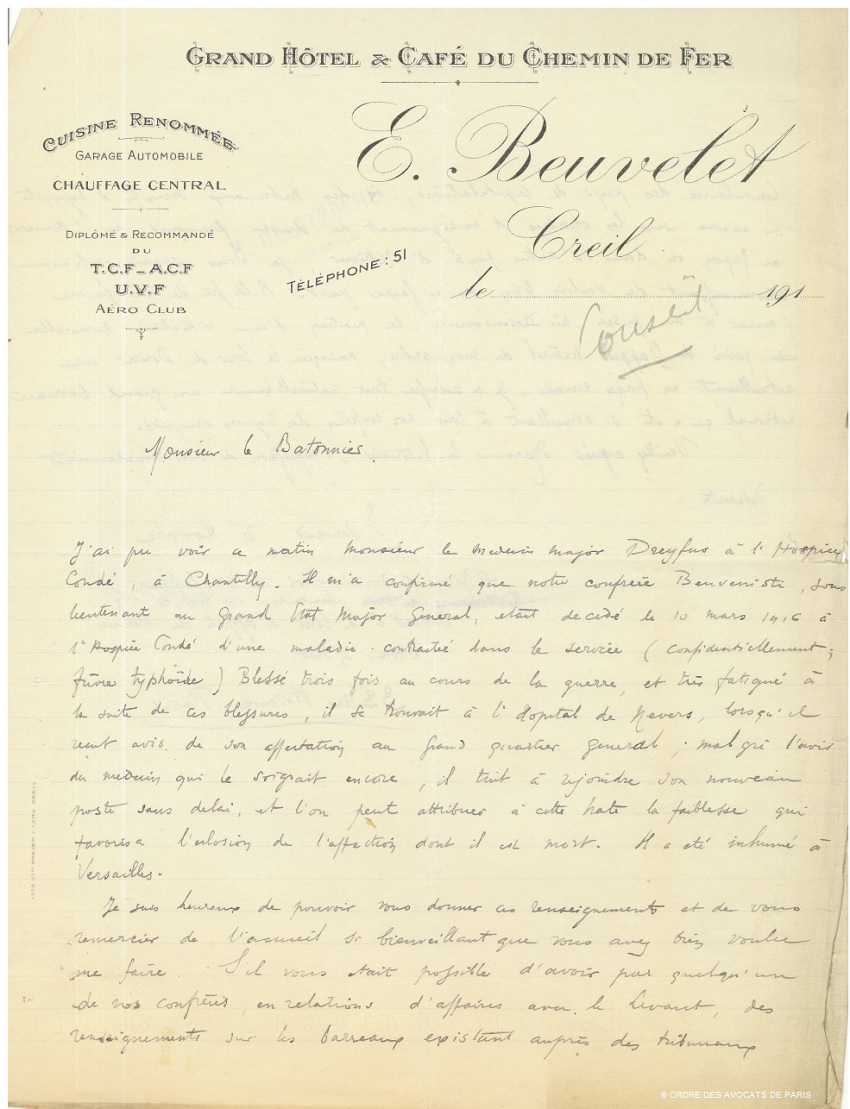 GRAND HÔTEL & CAFÉ DU CHEMIN DE FER
CUISINE RENOMMÉE
GARAGE AUTOMOBILE
CHAUFFAGE CENTRAL
DIPLÔMÉ & RECOMMANDÉ
DU
T.C.F_A.C.F
U.V.F
AÉRO CLUB
E. Beuvelet
Creil
TÉLÉPHONE : 51
le 191
Conseil
Monsieur le Batonnier.
J'ai pu voir ce matin Monsieur le Medecin major Dreyfus à l'Hospice
Condé, à Chantilly. Il m'a confirmé que notre confrère Benveniste, sous
lieutenant au Grand Etat Major General, etait decedé le 10 mars 1916 à
l'Hospice Condé d'une maladie contractée dans le service (confidentiellement ;
fièvre typhoïde) Blessé trois fois au cours de la guerre, et très fatigué à
la suite de ces blessures, il se trouvait à l'Hopital de Nevers, lorsqu'il
reçut avis de son affectation au Grand quartier general ; malgré l'avis
du medecin qui le soignait encore, il tint à rejoindre son nouveau
poste sans delai, et l'on peut attribuer à cette hate la faiblesse qui
favorisa l'eclosion de l'affection dont il est mort. Il a été inhumé à
Versailles.
Je suis heureux de pouvoir vous donner ces renseignements et de vous
remercier de l'accueil si bienveillant que vous avez bien voulu
me faire. S'il vous etait possible d'avoir par quelqu'un
de nos confrères, en relations d'affaires avec le Levant, des
renseignements sur les barreaux existant auprès des tribunaux
© ORDRE DES AVOCATS DE PARIS